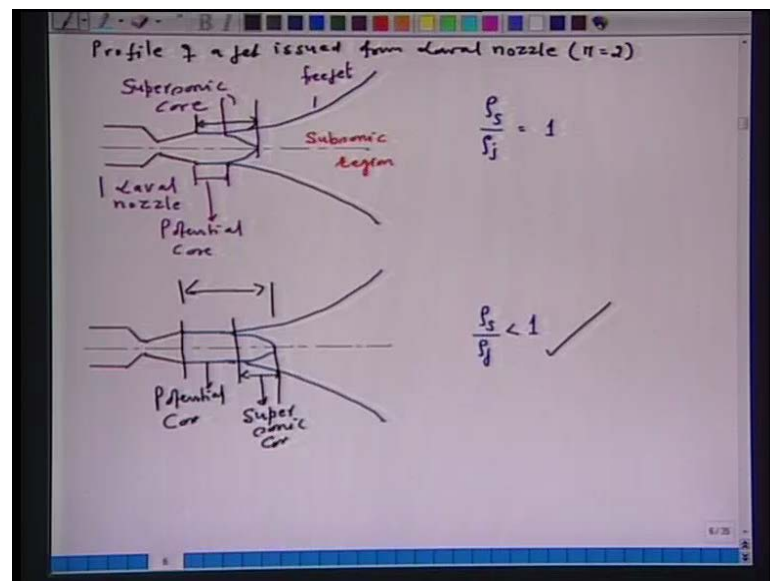 Profile of a jet issued from Laval nozzle (n=2)
Supersonic
core
freejet
Subsonic
region
Laval
nozzle
Potential
Core
ρs/ρj = 1
Potential
Cor
Super
sonic
Cor
ρs/ρj < 1
6/35
6